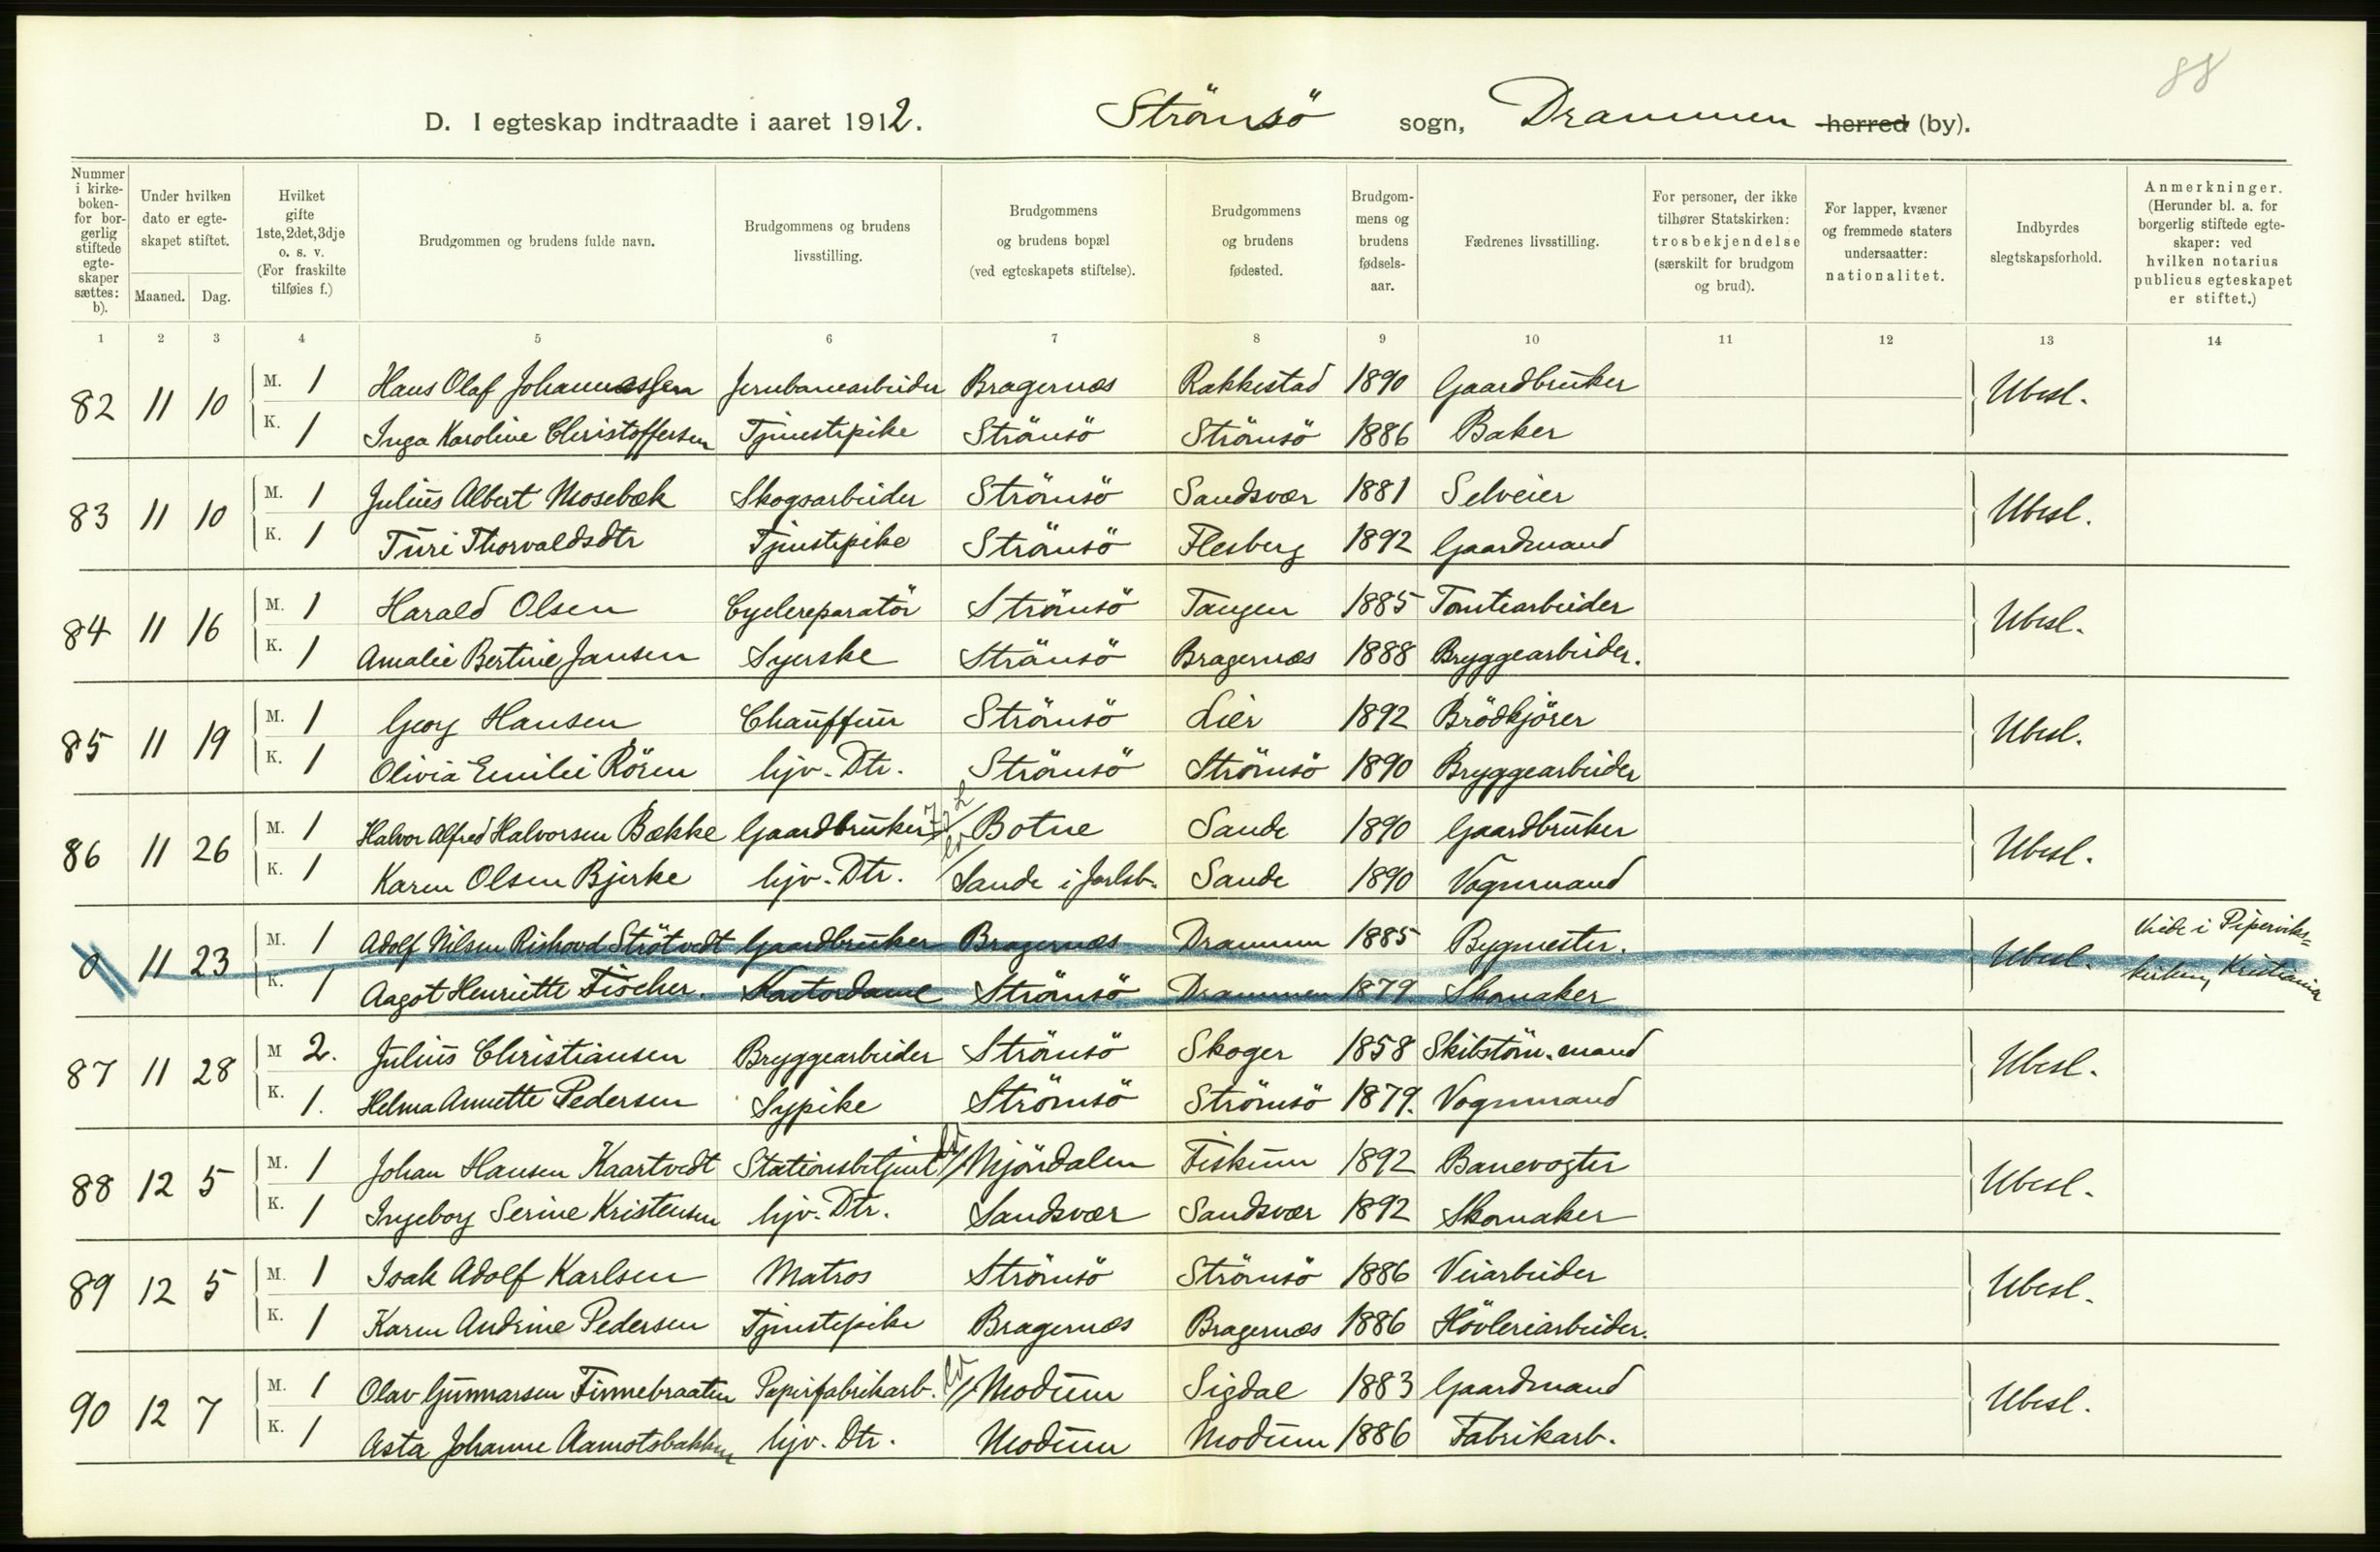 88
D. I egteskap indtraadte i aaret 1912. Strömsö sogn, Drammen herred (by).
Nummer i kirke-boken- for bor-gerlig stiftede egte-skaper sættes: b).
Under hvilken dato er egte-skapet stiftet.
Maaned. Dag.
Hvilket gifte 1ste, 2det, 3dje o. s. v. (For fraskilte tilføies f.)
Brudgommen og brudens fulde navn.
Brudgommens og brudens livsstilling.
Brudgommens og brudens bopæl (ved egteskapets stiftelse).
Brudgommens og brudens fødested.
Brudgom-mens og brudens fødsels-aar.
Fædrenes livsstilling.
For personer, der ikke tilhører Statskirken: trosbekjendelse (særskilt for brudgom og brud).
For lapper, kvæner og fremmede staters undersaatter: nationalitet.
Indbyrdes slegtskapsforhold.
Anmerkninger. (Herunder bl. a. for borgerlig stiftede egte-skaper: ved hvilken notarius publicus egteskapet er stiftet.)
1 2 3 4 5 6 7 8 9 10 11 12 13 14
82 11 10 M. 1 Hans Olaf Johannessen Jernbanearbeider Bragernæs Rakkestad 1890 Gaardbruker Ubesl.
K. 1 Inga Karoline Christoffersen Tjenestepike Strömsö Strömsö 1886 Baker
83 11 10 M. 1 Julius Albert Mosebæk Skogsarbeider Strömsö Sandsvær 1881 Selveier Ubesl.
K. 1 Turi Thorvaldsdtr Tjenstepike Strömsö Flesberg 1892 Gaardmand
84 11 16 M. 1 Harald Olsen Cyclereparatör Strömsö Tangen 1885 Tomtearbeider Ubesl.
K. 1 Amalie Bertine Jansen Syerske Strömsö Bragernæs 1888 Bryggearbeider.
85 11 19 M. 1 Georg Hansen Chauffeur Strömsö Lier 1892 Brödkjörer Ubesl.
K. 1 Olivia Emilie Rören hjv. Dtr. Strömsö Strömsö 1890 Bryggearbeider
86 11 26 M. 1 Halvor Alfred Halvorsen Bække Gaardbruker Botne Sande 1890 Gaardbruker Ubesl.
K. 1 Karen Olsen Bjerke hjv. Dtr. Sande i Jarlsb. Sande 1890 Vognmand
0 11 23 M. 1 Adolf Nilsen Rishovd Strötvedt Gaardbruker Bragernæs Drammen 1885 Bygmester. Ubesl. Viede i Piperviks=
K. 1 Aagot Henriette Fischer. Kontordame Strömsö Drammen 1879 Skomaker kirken, Kristiania
87 11 28 M 2. Julius Christiansen Bryggearbeider Strömsö Skoger 1858 Skibstöm.mand Ubesl.
K. 1. Helma Annette Pedersen Sypike Strömsö Strömsö 1879. Vognmand
88 12 5 M. 1 Johan Hansen Kaartvedt Stationsbetjent Mjöndalen Fiskum 1892 Banevogter Ubesl.
K. 1 Ingeborg Serine Kristensen hjv. Dtr. Sandsvær Sandsvær 1892 Skomaker
89 12 5 M. 1 Isak Adolf Karlsen Matros Strömsö Strömsö 1886 Veiarbeider Ubesl.
K. 1 Karen Andrine Pedersen Tjenstepike Bragernæs Bragernæs 1886 Hövleriarbeider.
90 12 7 M. 1 Olav Gunnarsen Finnebraaten Papirfabrikarb. Modum Sigdal 1883 Gaardmand Ubesl.
K. 1 Asta Johanne Aamotsbakken hjv. Dtr. Modum Modum 1886 Fabrikarb.